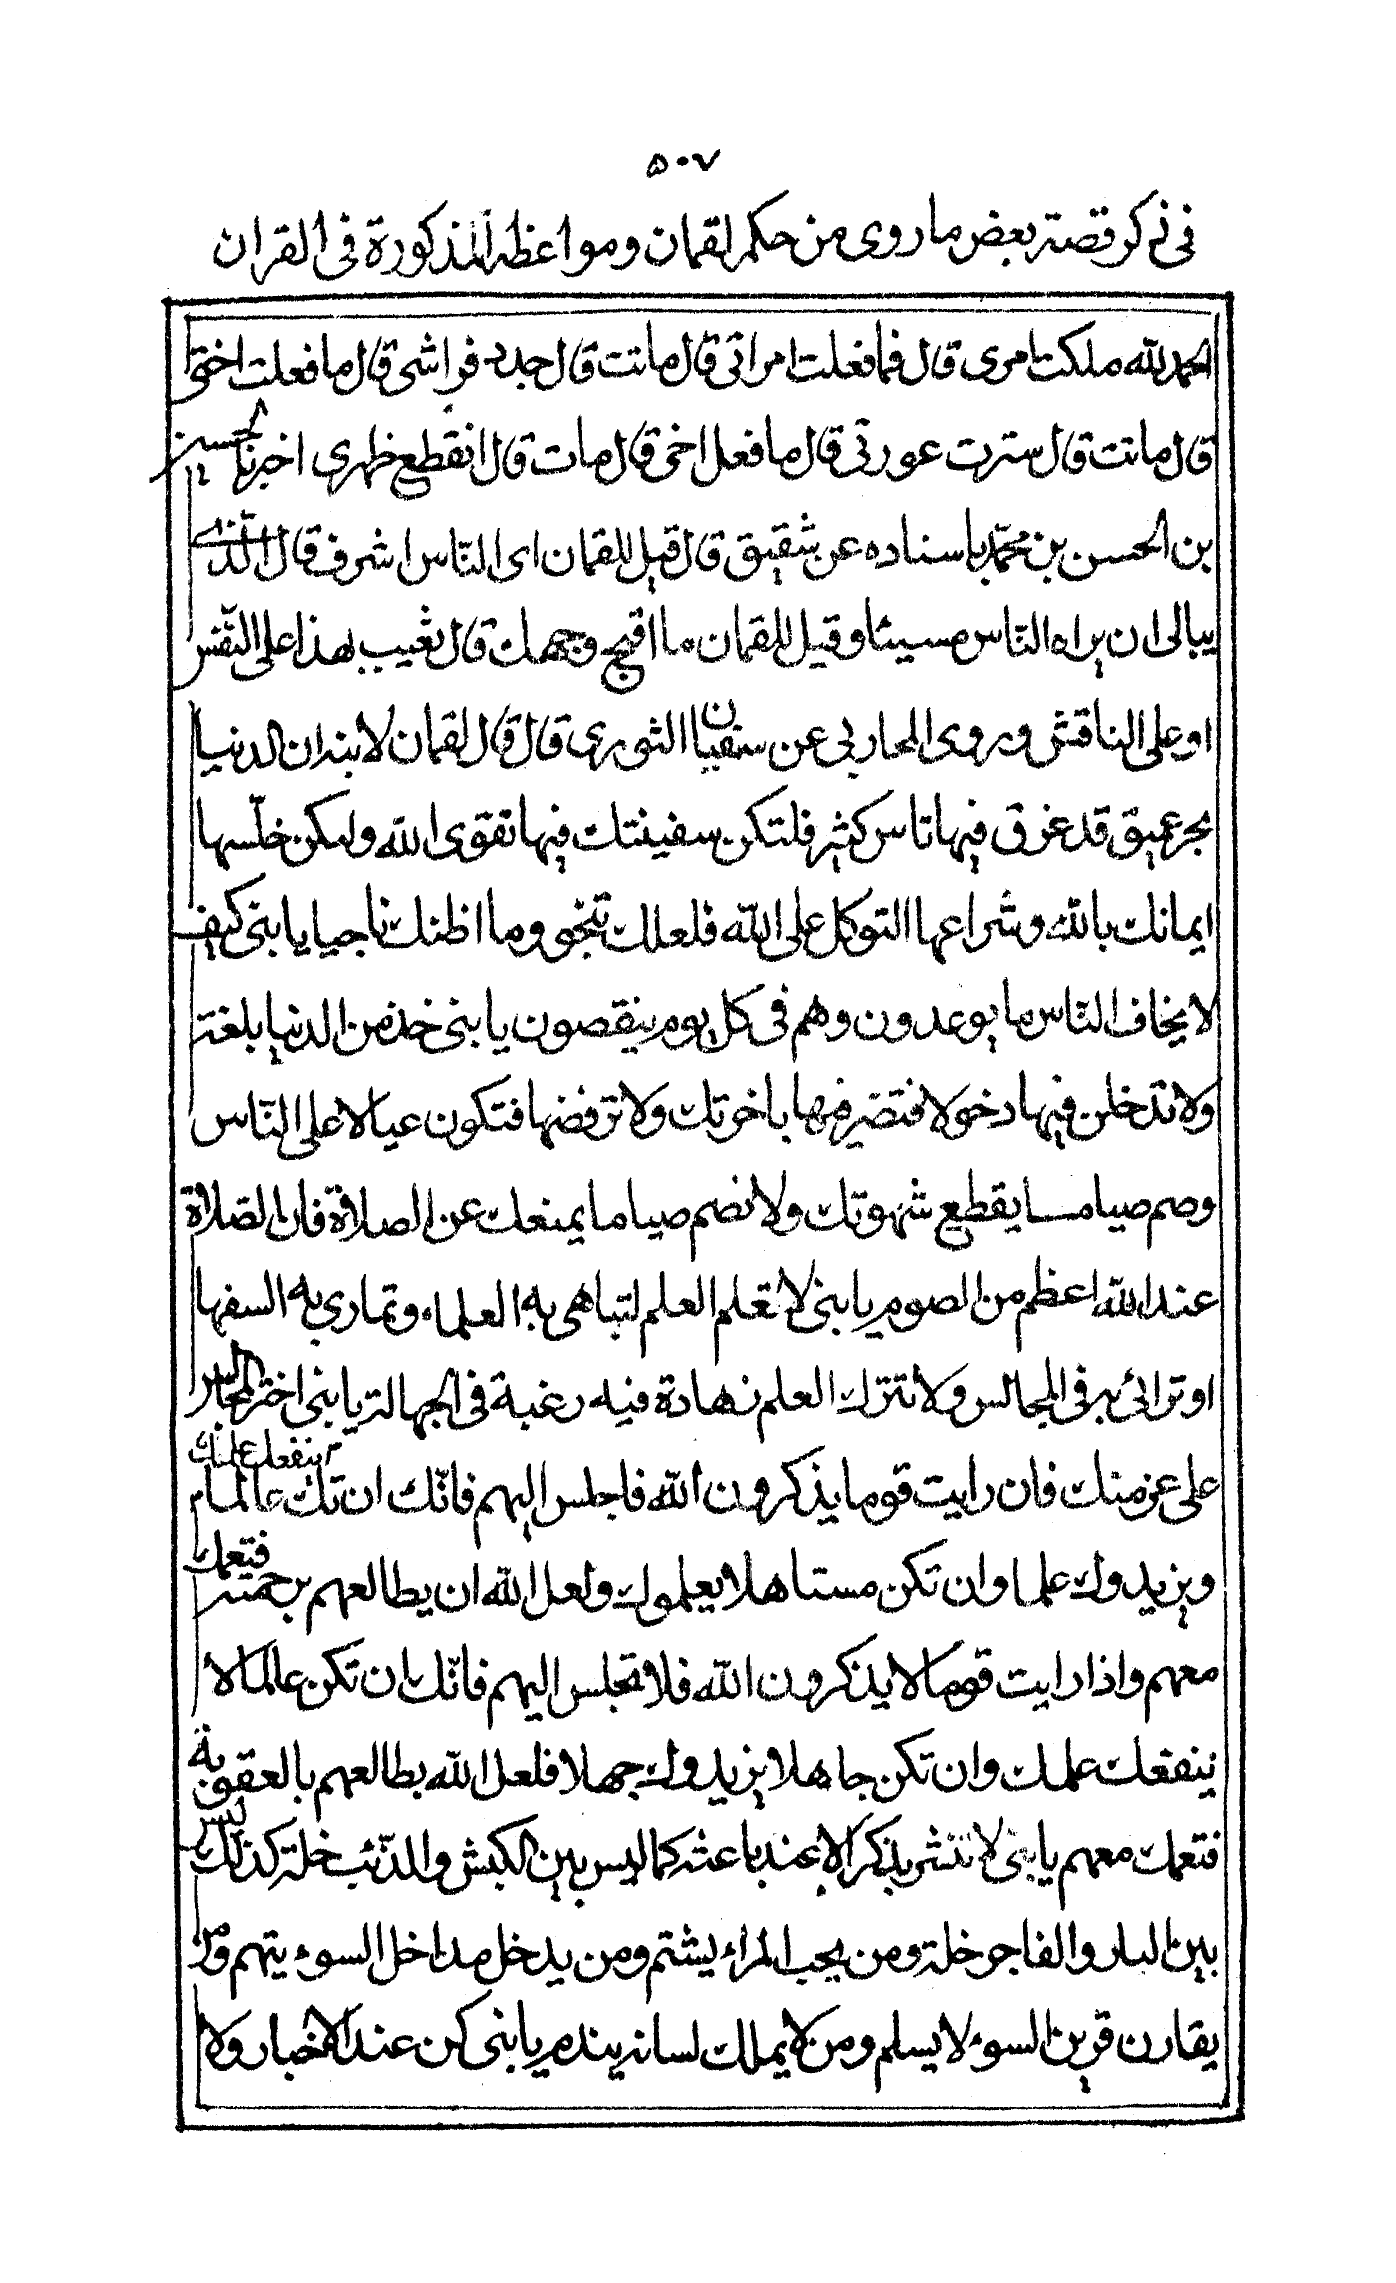 ۵۰۷
فی ذکر قصة بعض ما روی من حکم لقمان و مواعظه المذکورة فی القران
الحمد لله ملکت امری قال فما فعلت امراتی قال ماتت قال جدد فراشی قال ما فعلت اختی
قال ماتت قال سترت عورتی قال ما فعل اخی قال مات قال انقطع ظهری اخبرنا الحسین
بن الحسن بن محمّد باسناده عن شقیق قال قیل للقمان ای النّاس اشرف قال الّذی
یبالی ان یراه النّاس مسیئا وقیل للقمان ما اقبح وجهک قال تعیب بهذا علی النّقش
او علی الناقش وروی المحاربی عن سفیان الثوری قال قال لقمان لابنه ان الدنیا
بحر عمیق قد غرق فیها ناس کثیر فلتکن سفینتک فیها تقوی الله ولیکن خلّسها
ایمانک بالله وشراعها التوکل علی الله فلعلک تنجو وما اظنک ناجیا یا بنی کیف
لا یخاف النّاس ما یوعدون وهم فی کل یوم ینقصون یا بنی خذ من الدنیا بلغة
ولا تدخلن فیها دخولا فتضر فیها باخرتک ولا ترفضها فتکون عیالا علی النّاس
وصم صیامــا یقطع شهوتک ولا تصم صیاما یمنعک عن الصلاة فان الصّلاة
عند الله اعظم من الصوم یا بنی لا تعلم العلم لتباهی به العلماء وتماری به السفها
او ترائی به فی المجالس ولا تترک العلم زهادة فیه رغبة فی الجهالة یا بنی اختر المجالس
علی عزمنک فان رایت قوما یذکرون الله فاجلس الیهم فانّک ان تک عالما ینفعک علمک
ویزیدوک علما وان تکن مستاهلا یعلموک ولعل الله ان یطالعهم برحمته فتعمک
معهم واذا رایت قوما لا یذکرون الله فلا تجلس الیهم فانّک ان تکن عالما لا
ینفعک علمک وان تکن جاهلا یزیدوک جهلا فلعل الله یطالعهم بالعقوبة
فتعمک معهم یا بنی لا تنشر بذکر الا عند باعثه کما لیس بین الکبش والذّئب خلة کذلک لیس
بین البار والفاجر خلة ومن یحب المراء یشتم ومن یدخل مداخل السوء یتهم ومن
یقارن قرین السوء لا یسلم ومن لا یملک لسانه یندم یا بنی کن عند الاخیار ولا